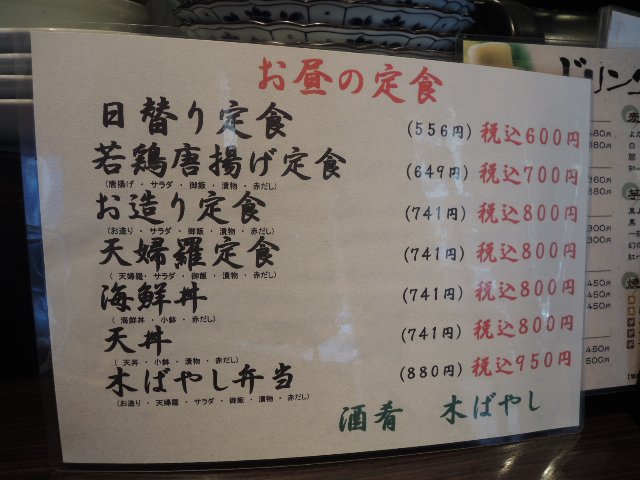 お昼の定食
日替り定食 (556円) 税込600円
若鶏唐揚げ定食 (649円) 税込700円
(唐揚げ ・ サラダ ・ 御飯 ・ 漬物 ・ 赤だし)
お造り定食 (741円) 税込800円
(お造り ・ サラダ ・ 御飯 ・ 漬物 ・ 赤だし)
天婦羅定食 (741円) 税込800円
(天婦羅 ・ サラダ ・ 御飯 ・ 漬物 ・ 赤だし)
海鮮丼 (741円) 税込800円
(海鮮丼 ・ 小鉢 ・ 赤だし)
天丼 (741円) 税込800円
(天丼 ・ 小鉢 ・ 漬物 ・ 赤だし)
木ばやし弁当 (880円) 税込950円
(お造り ・ 天婦羅 ・ サラダ ・ 御飯 ・ 漬物 ・ 赤だし)
酒肴 木ばやし
ドリン